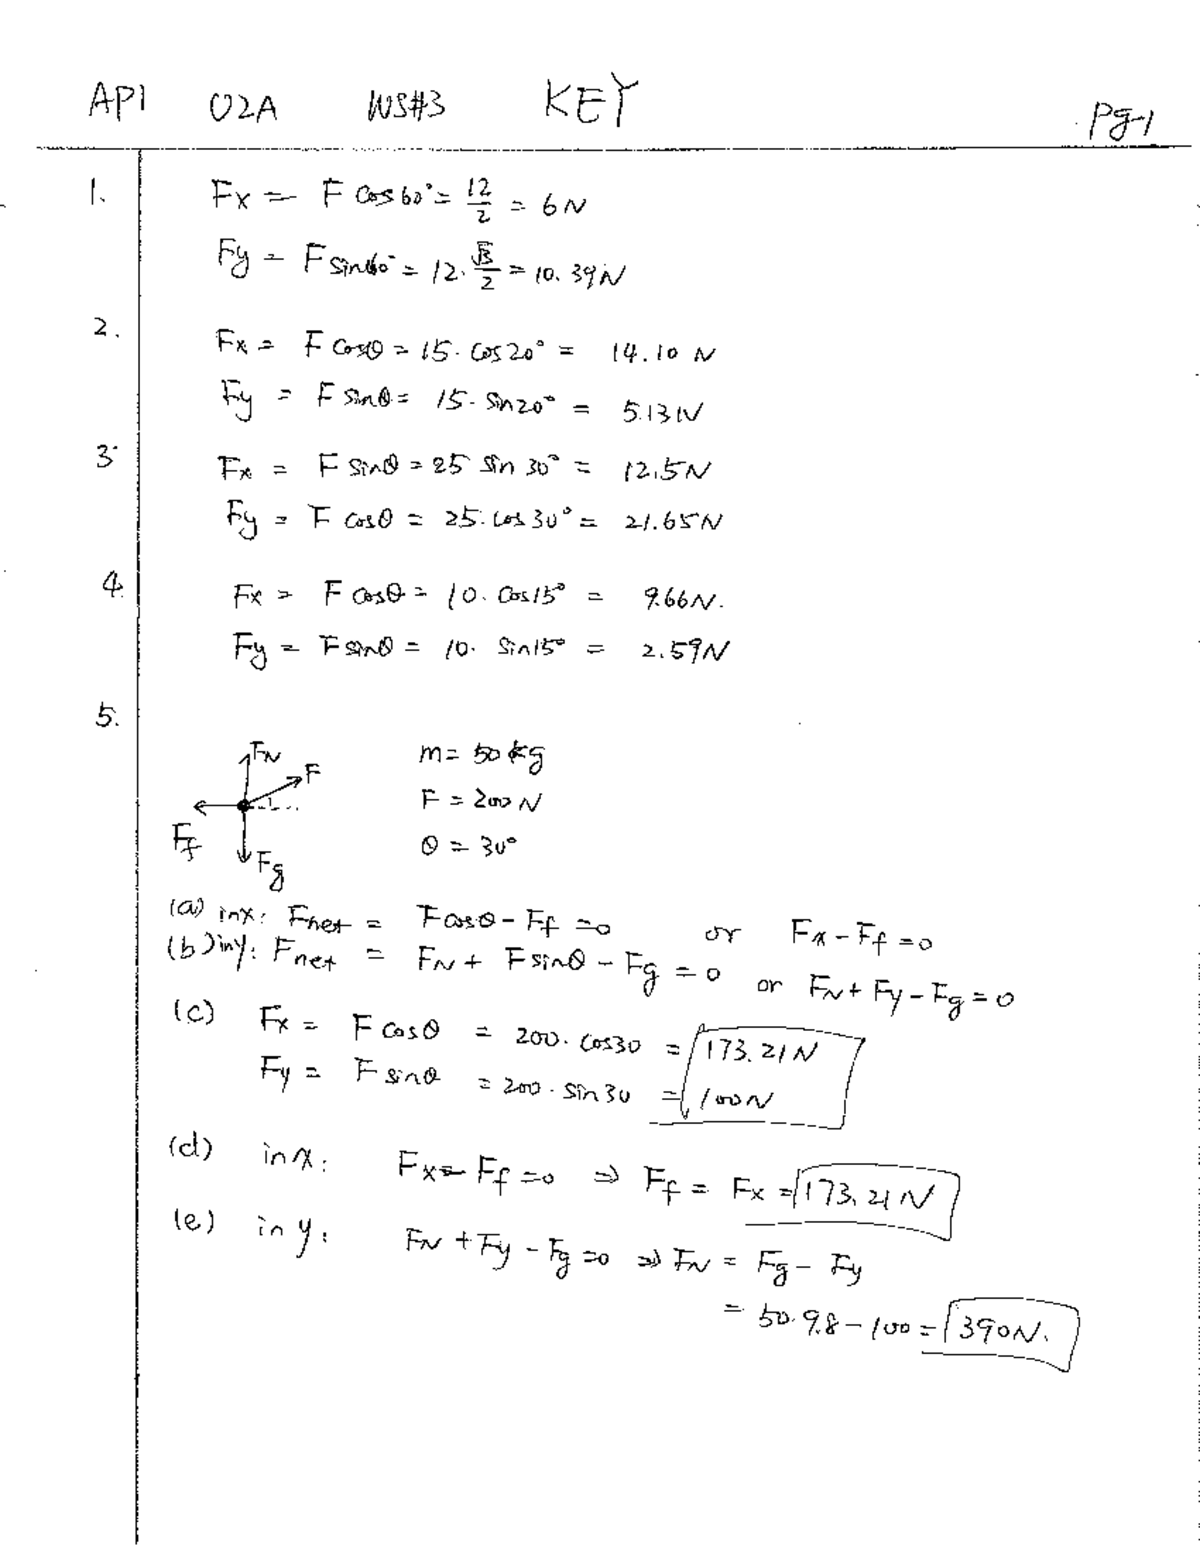 AP1 U2A WS#3 KEY pg-1
1. Fx = F cos60° = 12/2 = 6N
Fy = F sin60° = 12·√3/2 = 10.39N
2. Fx = F cosθ = 15·cos20° = 14.10 N
Fy = F sinθ = 15·sin20° = 5.13N
3. Fx = F sinθ = 25 sin 30° = 12.5N
Fy = F cosθ = 25·cos30° = 21.65N
4. Fx = F cosθ = 10·cos15° = 9.66N.
Fy = F sinθ = 10·sin15° = 2.59N
5.
FN
F
Ff
Fg
m = 50 kg
F = 200 N
θ = 30°
(a) in x: Fnet = F cosθ - Ff = 0 or Fx - Ff = 0
(b) in y: Fnet = FN + F sinθ - Fg = 0 or FN + Fy - Fg = 0
(c) Fx = F cosθ = 200·cos30 = 173.21N
Fy = F sinθ = 200·sin30 = 100N
(d) in x: Fx - Ff = 0 ⇒ Ff = Fx = 173.21N
(e) in y: FN + Fy - Fg = 0 ⇒ FN = Fg - Fy
= 50·9.8 - 100 = 390N.